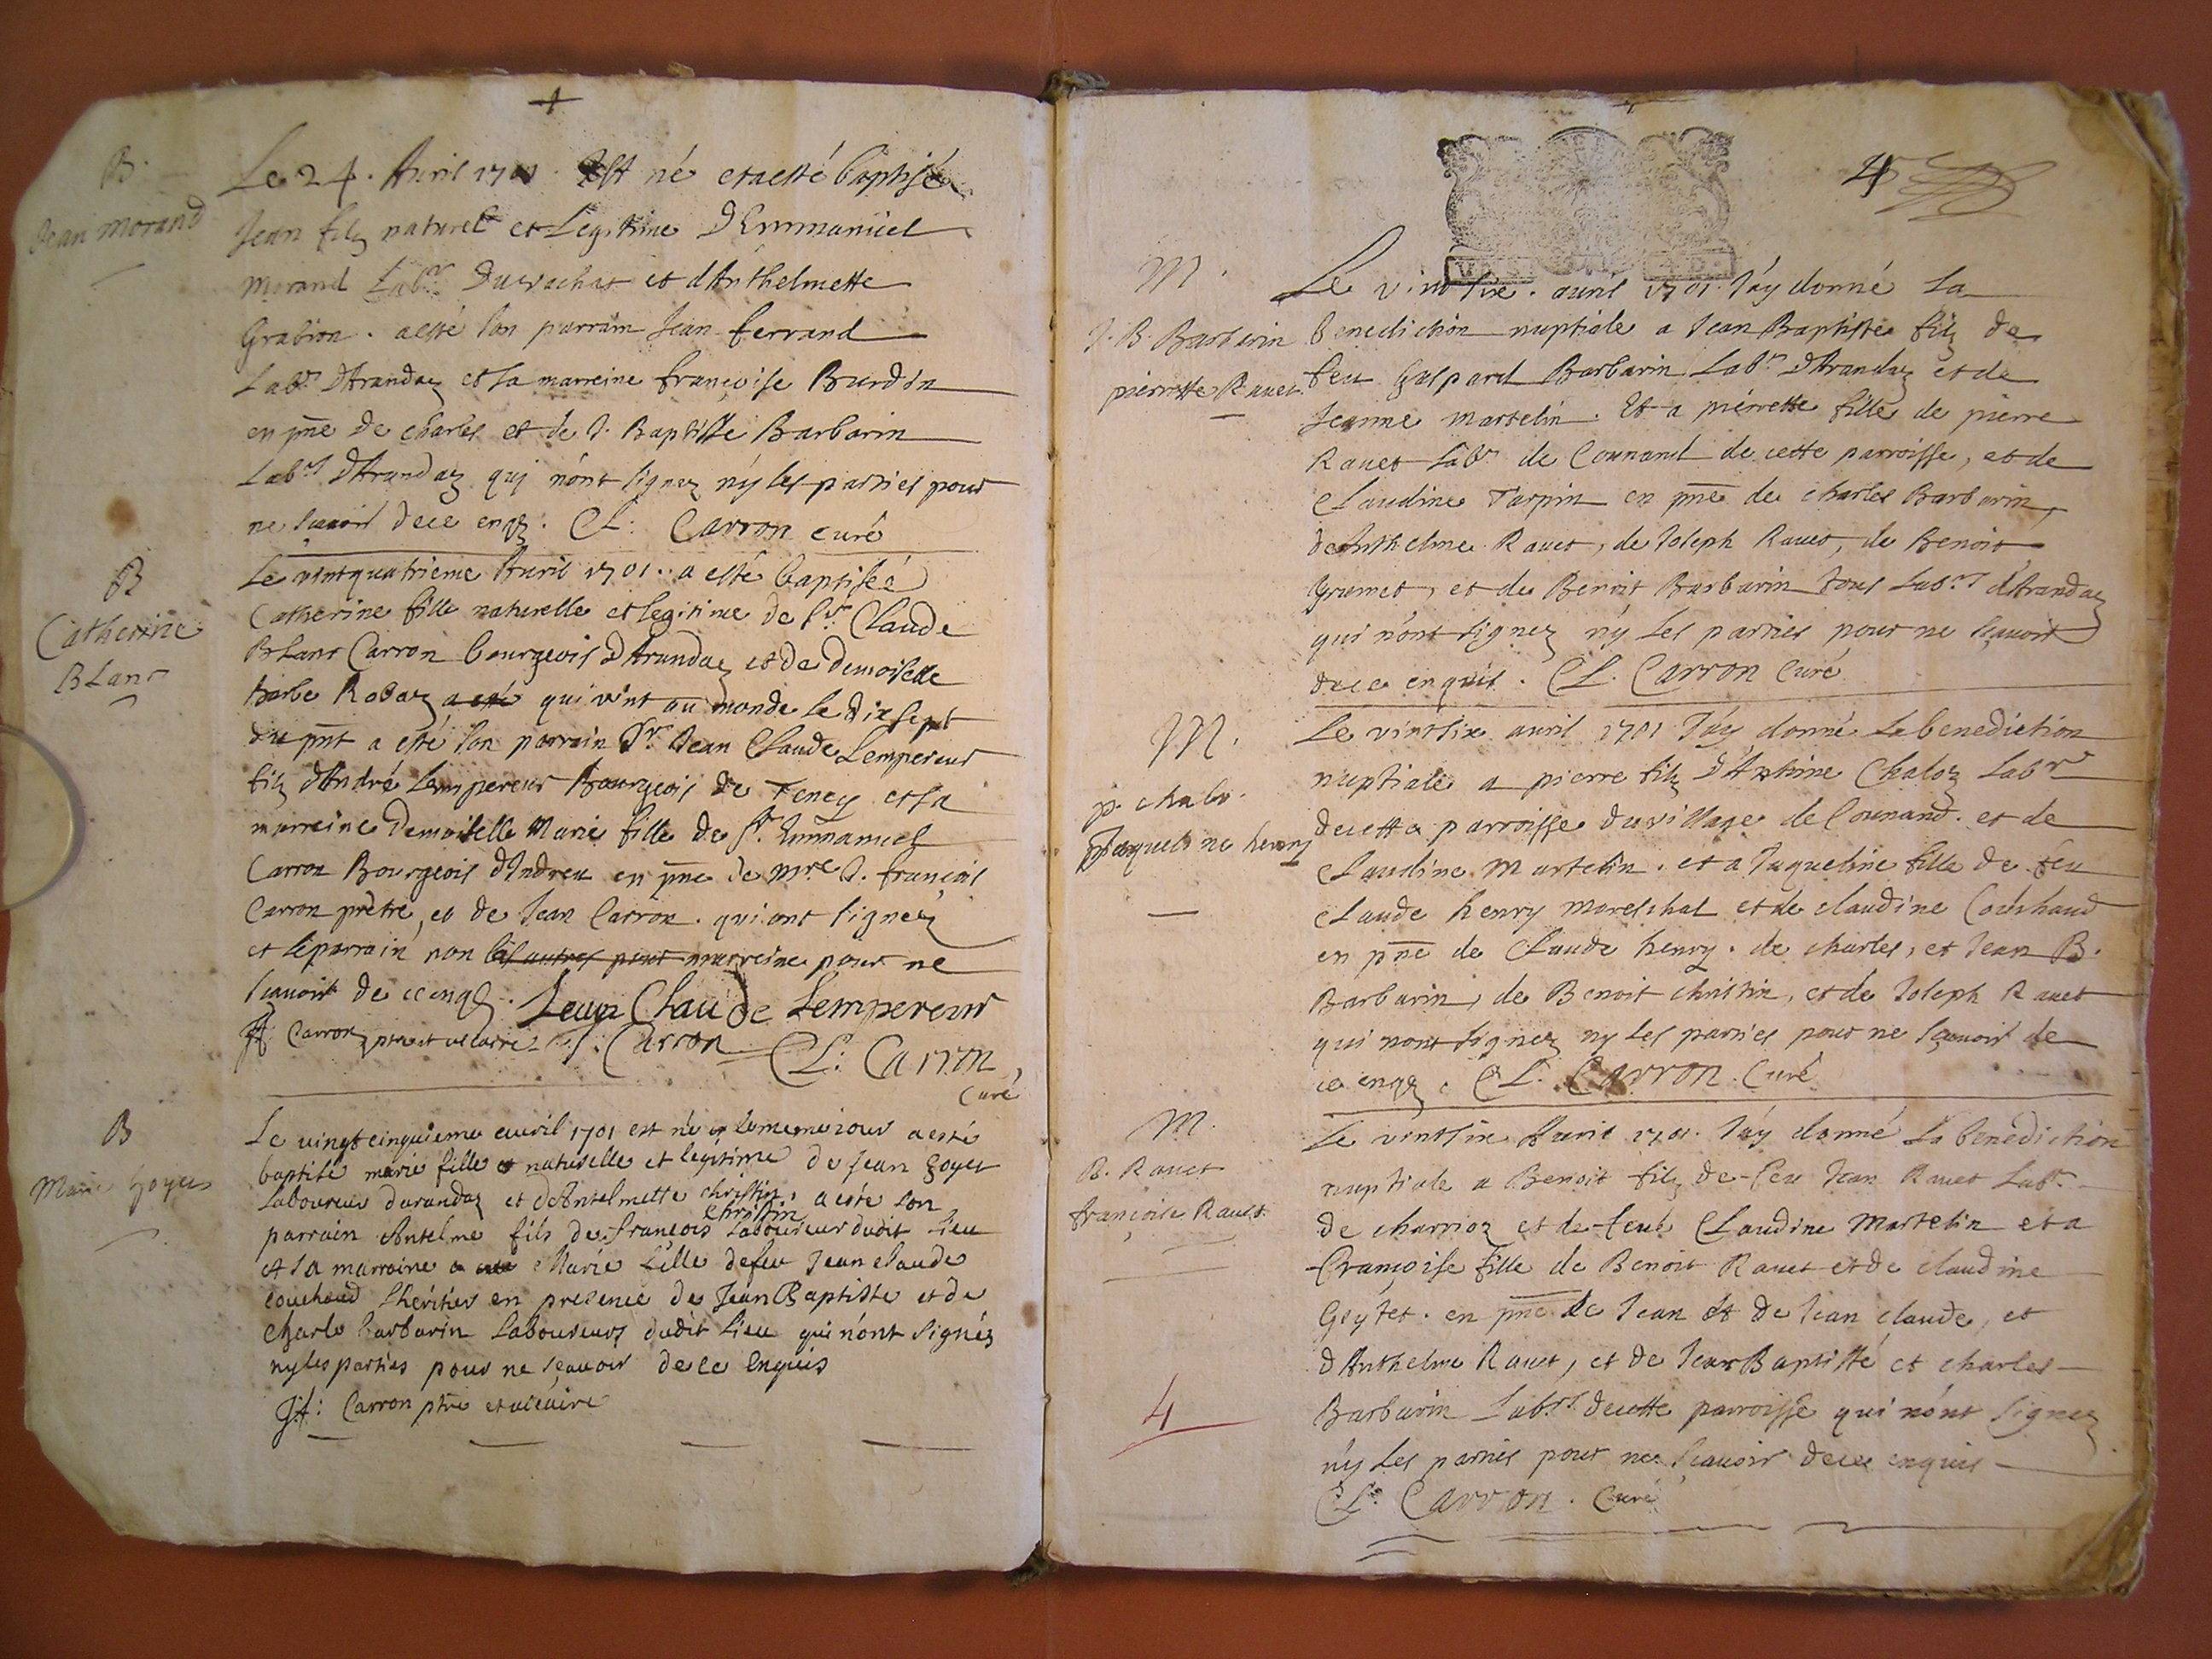 B.
Jean Morand
Le 24. Auril 1701. Est né et a esté baptisé
Jean filz naturel et Legitime D'Emmanüel
Morand Labr. du vachat et d'Anthelmette
Grabion. a esté son parrain Jean ferrand
Labr. D'Arandaz et sa marreine françoise Burdin
en pñe de charles et de J. Baptiste Barbarin
Labrs D'Arandaz qui n'ont signez n'y les parties pour
ne sçauoir de ce enqs. CL. Carron curé
B
Catherine
BLanc
Le vint quatrieme Auril 1701. a esté baptiseé
Catherine fille naturelle et legitime de Sr. Claude
BLanc Carron bourgeois D'Arandaz et de demoiselle
barbe Robaz a esté qui vint au monde le dix sept
du pñt a esté son parrain Sr. Jean CLaude Lempereur
filz d'André Lempereur Bourgeois de Teney et sa
marreine Demoiselle Marie fille de Sr. Emmanuel
Carron Bourgeois d'Indreu en pñe de Mre J. françois
Carron prêtre, et de Jean Carron. qui ont signéz
et le parrain non les autres pour marreine pour ne
sçauoir de ce enqs. Jean Claude Lempereur
Jf Carron ptre et vicaire J. Carron CL: Carron,
Curé
B
Marie Goyet
Le vingt cinquieme auril 1701 est né et le meme iour a esté
baptisé marie fille et naturelle et legitime de Jean goyet
Laboureur darandaz et dAntelmette christin. a esté son
parrain Antelme fils de françois christin Laboureur dudit Lieu
et sa marraine a esté Marie fille de feu Jean claude
couchoud Lhéritier en presence de Jean Baptiste et de
Charle barbarin Laboureurs dudit Lieu qui n'ont signés
ny les parties pour ne sçauoir de ce Enquis
Jf: Carron ptre et vicaire
4
M.
J. B. Barbarin
pierrette Rauet
Le vint six. auril 1701. J'ay donné La
benediction nuptiale a Jean Baptiste filz de
feu Gaspard Barbarin Labr. D'Arandaz et de
Jeanne Martelin. Et a pierrette fille de pierre
Rauet Labr. de Counand de cette parroisse, et de
CLaudine Tarpin en pñe de charles Barbarin,
d'Anthelme Rauet, de Joseph Rauet, de Benoit
Grumet, et de Benoit Barbarin tous Labrs d'Arandaz
qui n'ont signez n'y Les parties pour ne sçauoir
de ce enquis. CL. Carron Curé
M.
p. chaloz.
Jaqueline henry
Le vint six auril 1701 J'ay donné La benediction
nuptiale a pierre filz d'Antoine Chaloz Labr
de cette parroisse du village de Counand. et de
CLaudine Martelin. et a Jaqueline fille de feu
CLaude henry Mareschal et de claudine Couchoud
en pñe de CLaude henry. de charles, et Jean B.
Barbarin, de Benoit christin, et de Joseph Rauet
qui n'ont signez ny Les parties pour ne sçauoir de
ce enqs. CL. Carron. Curé
M.
B. Rauet
françoise Rauet.
Le vint six Auril 1701. J'ay donné La benediction
nuptiale a Benoit filz de feu Jean Rauet Labr.
de charrioz et de feue CLaudine Martelin et a
françoise fille de Benoit Rauet et de claudine
Grytet. en pñe de Jean et de Jean claude, et
d'Anthelme Rauet, et de Jean Baptiste et charles
Barbarin Labrs. de cette parroisse qui n'ont signez
n'y Les parties pour ne sçauoir de ce enquis
CL. Carron. Curé
4